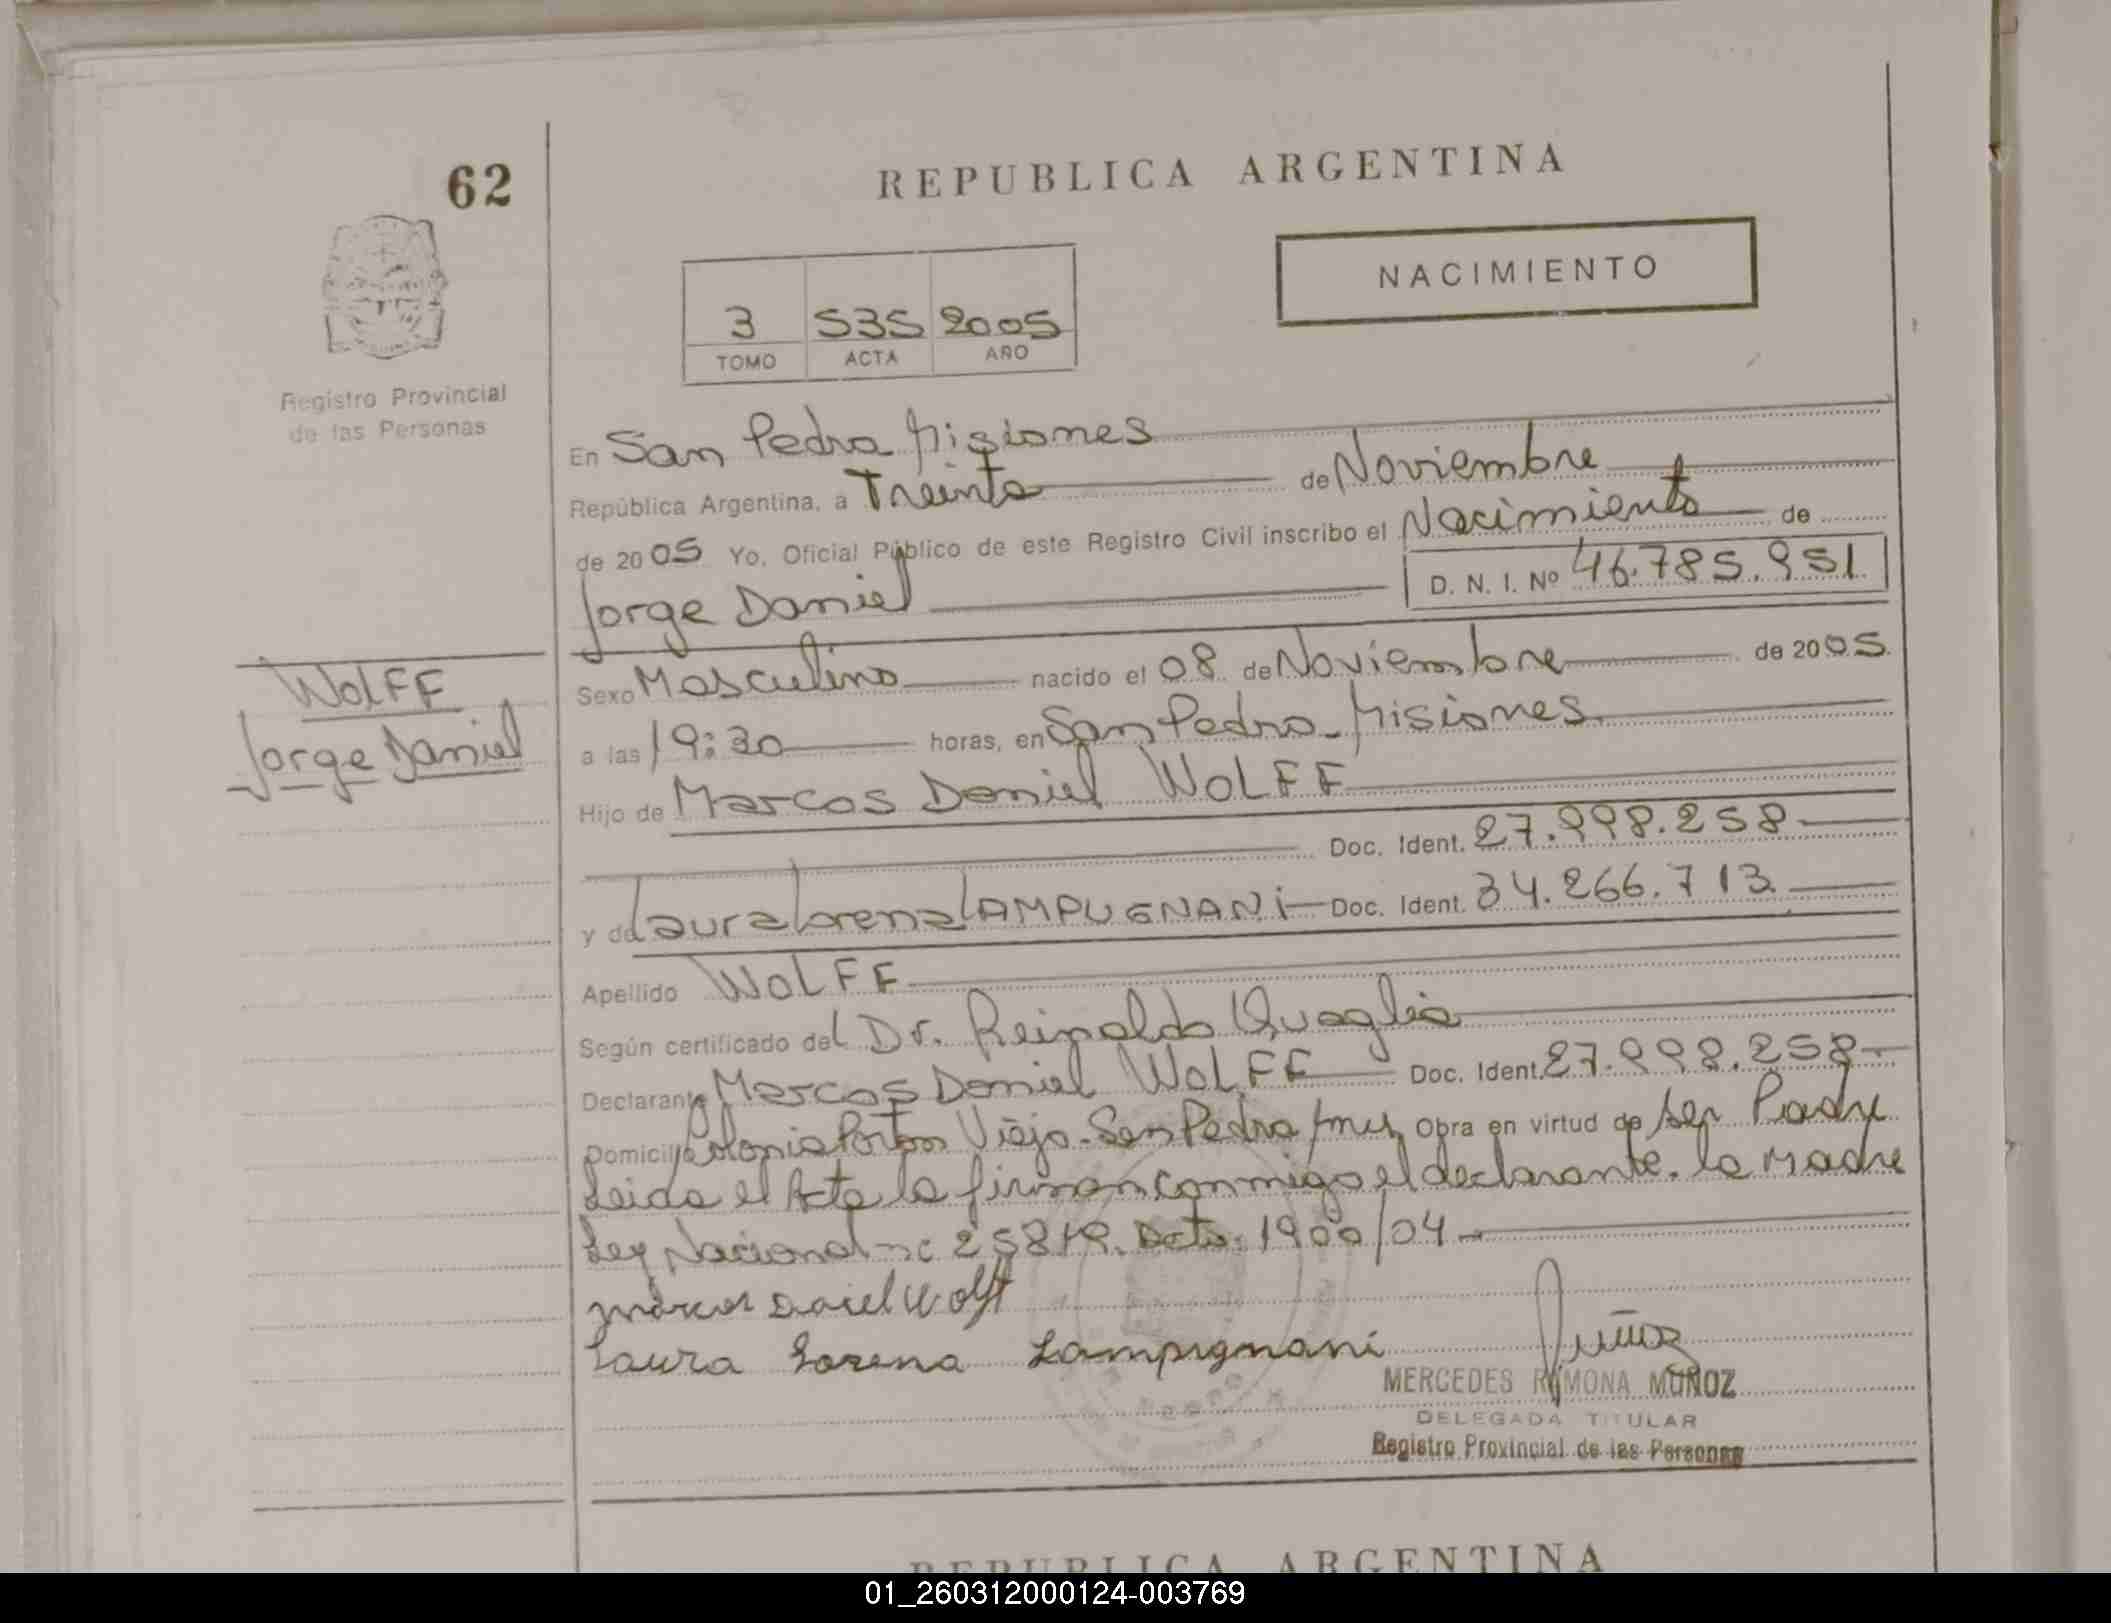 62
REPUBLICA ARGENTINA
NACIMIENTO
3 535 2005
TOMO ACTA AÑO
Registro Provincial
de las Personas
En San Pedro Misiones
República Argentina, a Treinta de Noviembre
de 2005 Yo, Oficial Público de este Registro Civil inscribo el Nacimiento de
Jorge Daniel D. N. I. Nº 46.785.951
WOLFF
Jorge Daniel
Sexo Masculino nacido el 08 de Noviembre de 2005
a las 19:30 horas, en San Pedro - Misiones
Hijo de Marcos Daniel WOLFF
Doc. Ident. 27.998.258
y de Laura Lorena LAMPUGNANI Doc. Ident. 34.266.713
Apellido WOLFF
Según certificado del Dr. Reinaldo Quaglia
Declarante Marcos Daniel WOLFF Doc. Ident. 27.998.258
Domicilio Colonia Porton Viejo - San Pedro Mnes Obra en virtud de ser Padre
Leida el Acta la firman conmigo el declarante. la Madre
Ley Nacional nº 25819. Dcto. 1900/04
Marcos Daniel Wolff
Laura Lorena Lampugnani
MERCEDES RAMONA MUÑOZ
DELEGADA TITULAR
Registro Provincial de las Personas
REPUBLICA ARGENTINA
01_260312000124-003769